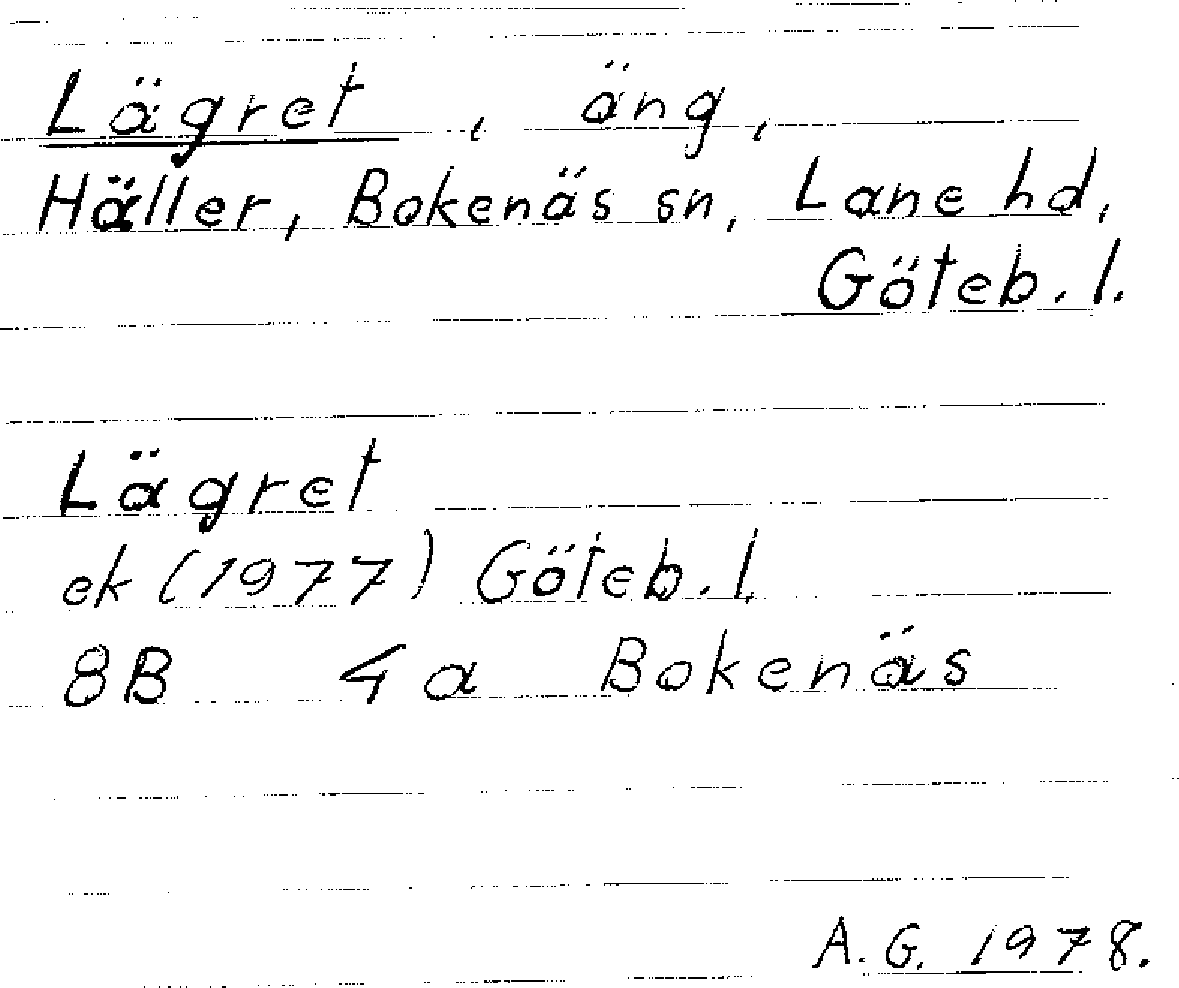 Lägret, äng,
Häller, Bokenäs sn, Lane hd,
Göteb. l.
Lägret
ek (1977) Göteb. l.
8B 4a Bokenäs
A. G. 1978.